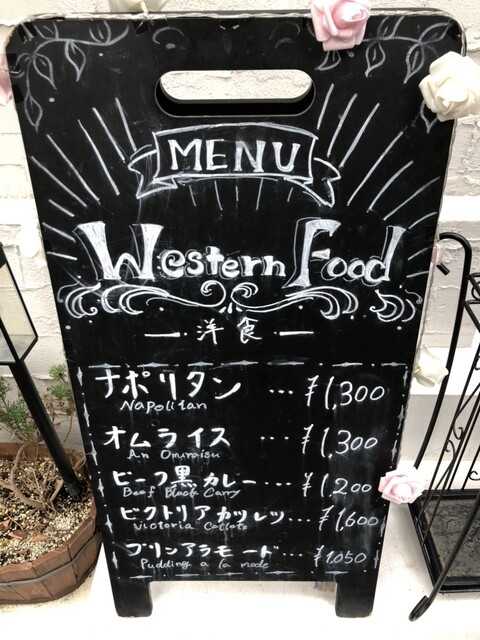 MENU
Western Food
洋食
ナポリタン ... ¥1,300
Napolitan
オムライス ... ¥1,300
An Omuraisu
ビーフ黒カレー ... ¥1,200
Beef Black Curry
ビクトリアカツレツ... ¥1,600
Victoria Cutlets
プリンアラモード... ¥1,050
Pudding a la mode